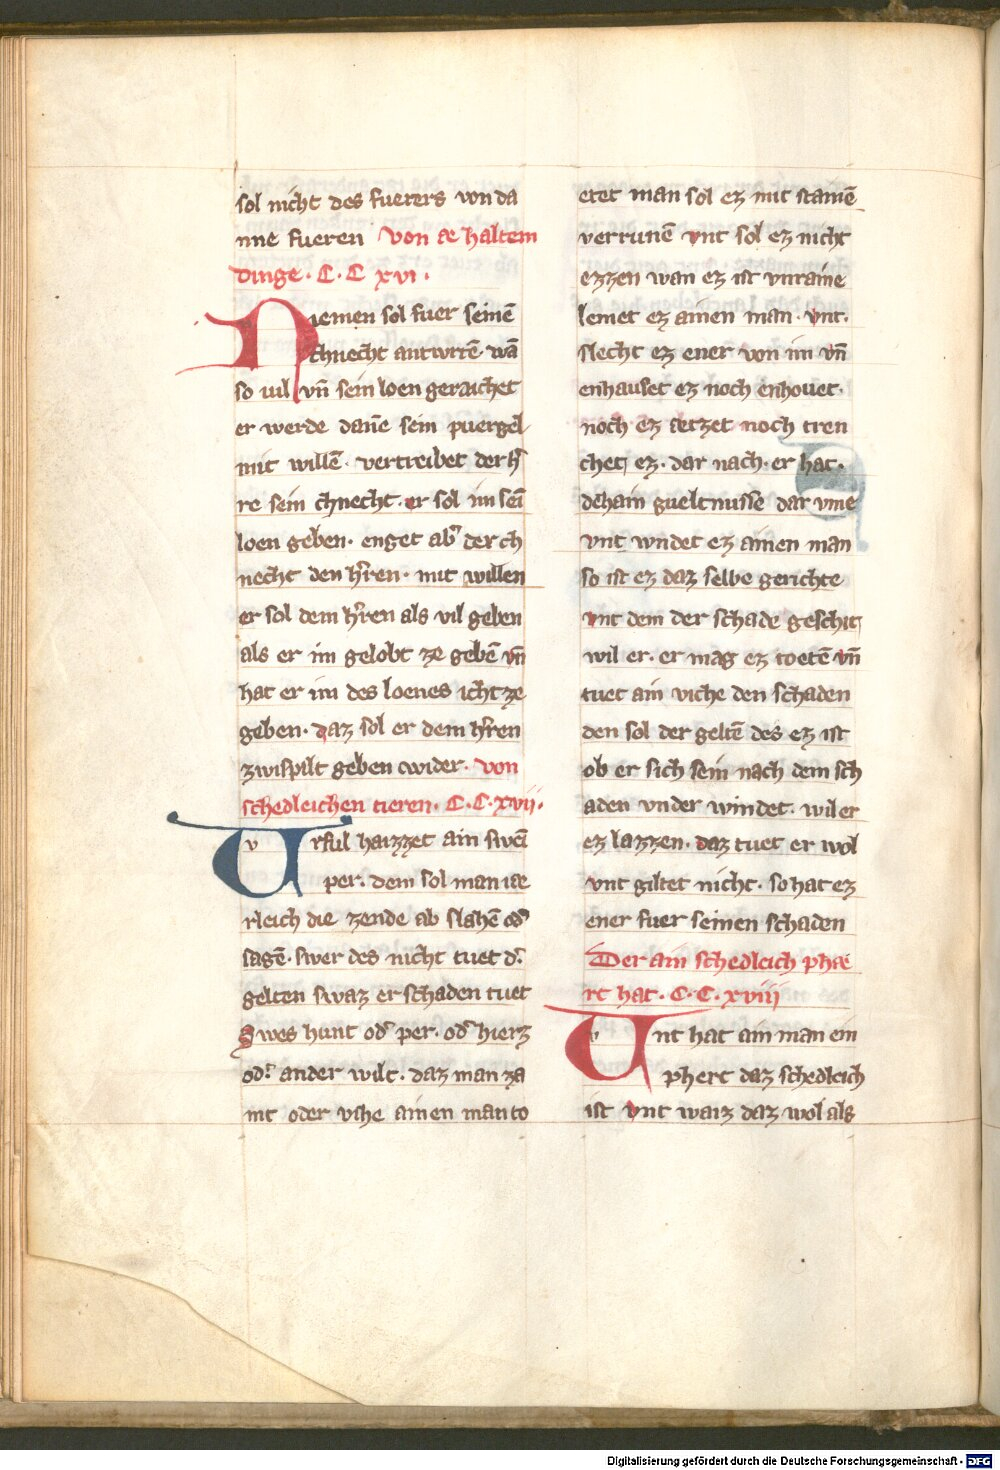 sol nicht des fuerers von da
nne fueren Von æ haltem
dinge · C · C xvi ·
Niemen sol fuer seinē
chnecht antwrtē · wā
so vil vn̄ sein loen geraichet
er werde dan̄e sein puergel
mit willē · vertreibet der h̾
re sein chnecht · er sol im sei̅
loen geben · enget ab̾ der ch
necht den h̾ren · mit willen
er sol dem h̾ren als vil geben
als er im gelobt ze gebē vn̄
hat er im des loenes icht ze
geben · daz sol er dem h̾ren
zwispilt geben wider · von
schedleichen tieren · C · C · xvij ·
Urful haizzet ain swei̅
per · dem sol man iæ
rleich die zende ab slahē od̾
sagē · swer des nicht tuet d̾
gelten swaz er schaden tuet
Swes hunt od̾ per · od̾ hierz
od̾ ander wilt · daz man za
mt oder vihe ainen man to
etet man sol ez mit stainē
verrunē vnt sol ez nicht
ezzen wan ez ist vnraine
lemet ez ainen man · vnt ·
slecht ez ener von im vn̄
enhauset ez noch enhouet ·
noch ez ætzet noch tren
chet ez · dar nach · er hat ·
dehain gueltnusse dar vme
vnt wndet ez ainen man
so ist ez daz selbe gerichte
vnt dem der schade geschit
wil er · er mag ez toetē vn̄
tuet ain viche den schaden
den sol der geltē des ez ist
ob er sich sein nach dem sch
aden vnder windet · wil er
ez lazzen · daz tuet er wol
vnt giltet nicht · so hat ez
ener fuer seinen schaden
Der ain schedleich phæ
rt hat · C · C · xviij
Unt hat ain man ein
phert daz schedleich
ist vnt waiz daz wol als
Digitalisierung gefördert durch die Deutsche Forschungsgemeinschaft - DFG